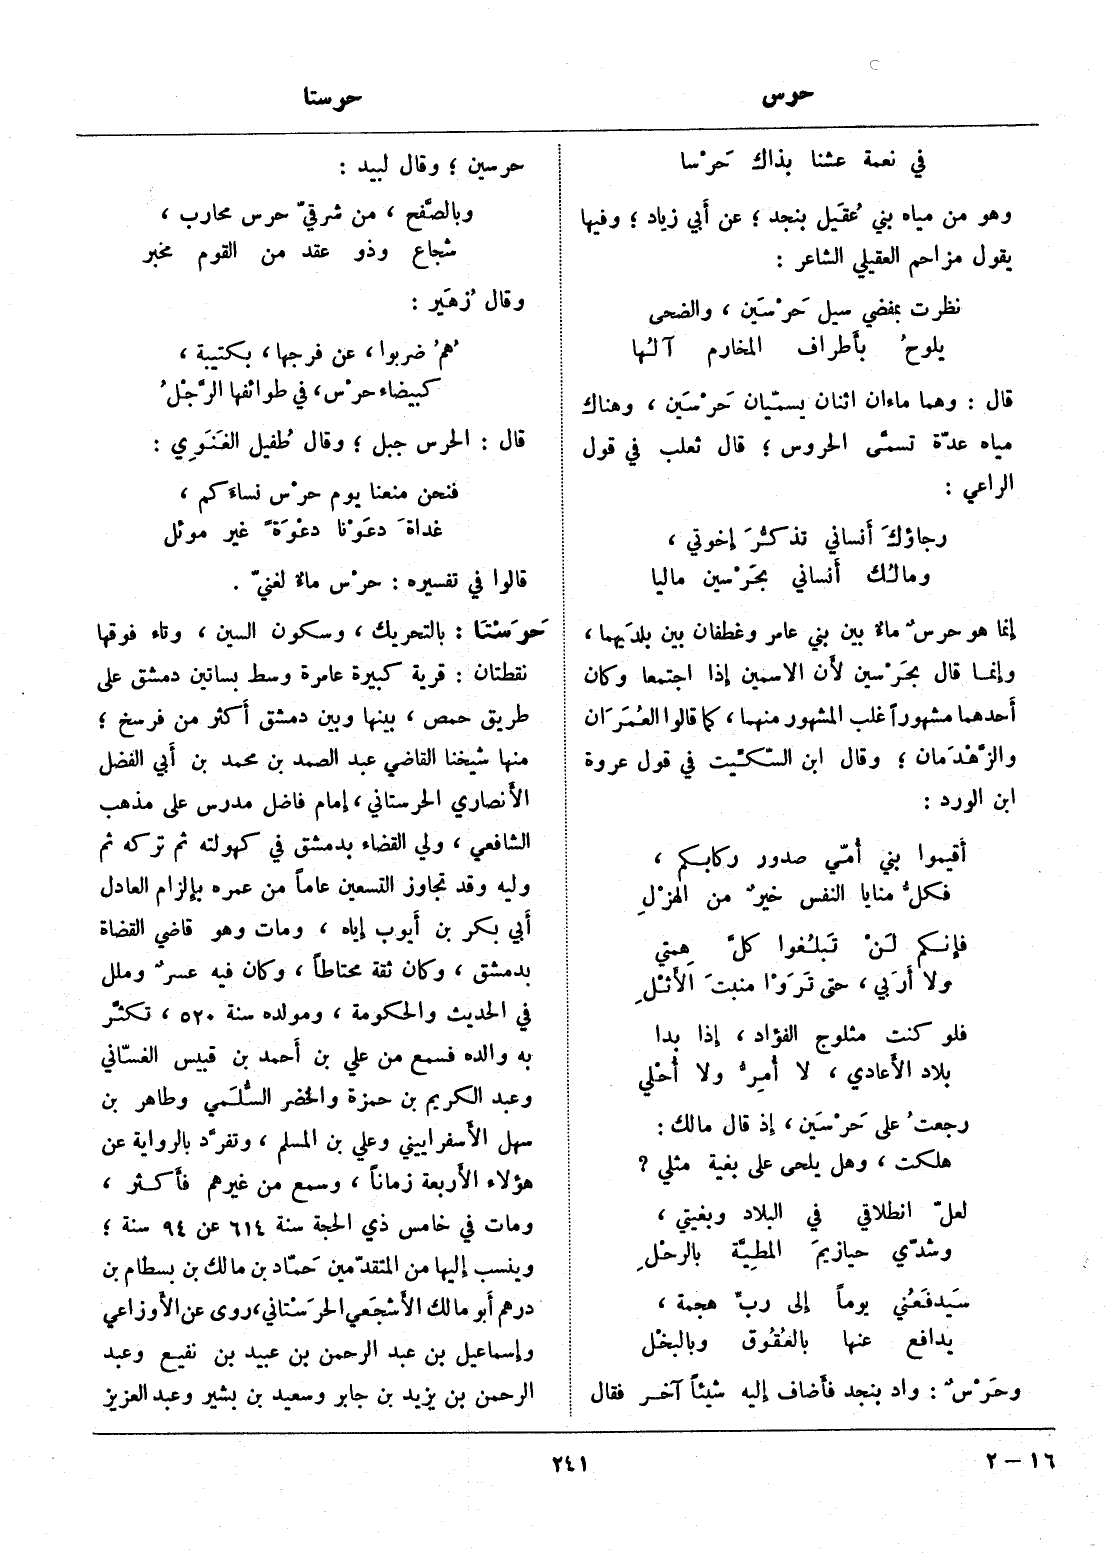 حرس
حرستا
في نعمة عشنا بذاك حَرْسا
وهو من مياه بني عُقَيل بنجد ؛ عن أبي زياد ؛ وفيها
يقول مزاحم العقيلي الشاعر :
نظرت بمفضي سيل حَرْسَين ، والضحى
يلوحُ بأطراف المخارم آلُها
قال : وهما ماءان اثنان يسمّيان حَرْسَين ، وهناك
مياه عدّة تسمَّى الحروس ؛ قال ثعلب في قول
الراعي :
رجاؤكَ أنساني تذكُّرَ إخوتي ،
ومالُك أنساني بحَرْسين ماليا
إنما هو حرسٌ ماءٌ بين بني عامر وغطفان بين بلدَيهما ،
وإنما قال بحَرْسين لأن الاسمين إذا اجتمعا وكان
أحدهما مشهوراً غلب المشهور منهما ، كما قالوا العُمَرَان
والزَّهْدَمان ؛ وقال ابن السّكّيت في قول عروة
ابن الورد :
أقيموا بني أمّي صدور ركابكم ،
فكلُّ منايا النفس خيرٌ من الهزْلِ
فإنكم لَنْ تَبلُغوا كلَّ هِمتي
ولا أرَبي ، حتى تَرَوْا منبتَ الأثْلِ
فلو كنت مثلوج الفؤاد ، إذا بدا
بلاد الأعادي ، لا أُمِرُّ ولا أُحْلي
رجعتُ على حَرْسَين ، إذ قال مالك :
هلكت ، وهل يلحى على بغية مثلي ؟
لعلّ انطلاقي في البلاد وبغيتي ،
وشدّي حيازيمَ المطيَّة بالرحْلِ
سَيدفَعُني يوماً إلى ربِّ هجمة ،
يدافع عنها بالعُقُوق وبالبخْل
وحَرْسٌ : واد بنجد فأضاف إليه شيئاً آخر فقال
حرسين ؛ وقال لبيد :
وبالصَّفح ، من شرقيّ حرس محارب ،
شجاع وذو عقد من القوم مخبر
وقال زُهَير :
هُمُ ضربوا ، عن فرجها ، بكتيبة ،
كبيضاء حرْس ، في طوائفها الرَّجْلُ
قال : الحرس جبل ؛ وقال طُفيل الغَنَوِي :
فنحن منعنا يوم حرْس نساءَكم ،
غداةَ دعَوْنا دعْوَةً غير موئل
قالوا في تفسيره : حرْس ماءٌ لغنيّ .
حَرَسْتَا : بالتحريك ، وسكون السين ، وتاء فوقها
نقطتان : قرية كبيرة عامرة وسط بساتين دمشق على
طريق حمص ، بينها وبين دمشق أكثر من فرسخ ؛
منها شيخنا القاضي عبد الصمد بن محمد بن أبي الفضل
الأنصاري الحرستاني ، إمام فاضل مدرس على مذهب
الشافعي ، ولي القضاء بدمشق في كهولته ثم تركه ثم
وليه وقد تجاوز التسعين عاماً من عمره بإلزام العادل
أبي بكر بن أيوب إياه ، ومات وهو قاضي القضاة
بدمشق ، وكان ثقة محتاطاً ، وكان فيه عسرٌ وملل
في الحديث والحكومة ، ومولده سنة ٥٢٠ ، تكثَّر
به والده فسمع من علي بن أحمد بن قبيس الغسّاني
وعبد الكريم بن حمزة والخضر السُّلَمي وطاهر بن
سهل الأسفراييني وعلي بن المسلم ، وتفرَّد بالرواية عن
هؤلاء الأربعة زماناً ، وسمع من غيرهم فأكثر ،
ومات في خامس ذي الحجة سنة ٦١٤ عن ٩٤ سنة ؛
وينسب إليها من المتقدّمين حَمّاد بن مالك بن بسطام بن
درهم أبو مالك الأشجَعي الحرَسْتاني ، روى عن الأوزاعي
وإسماعيل بن عبد الرحمن بن عبيد بن نفيع وعبد
الرحمن بن يزيد بن جابر وسعيد بن بشير وعبد العزيز
١٦ – ٢
٢٤١